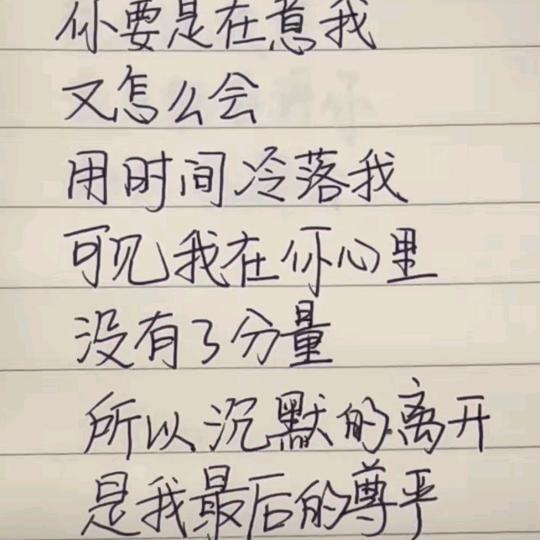 你要是在意我
又怎么会
用时间冷落我
可见我在你心里
没有了分量
所以沉默的离开
是我最后的尊严